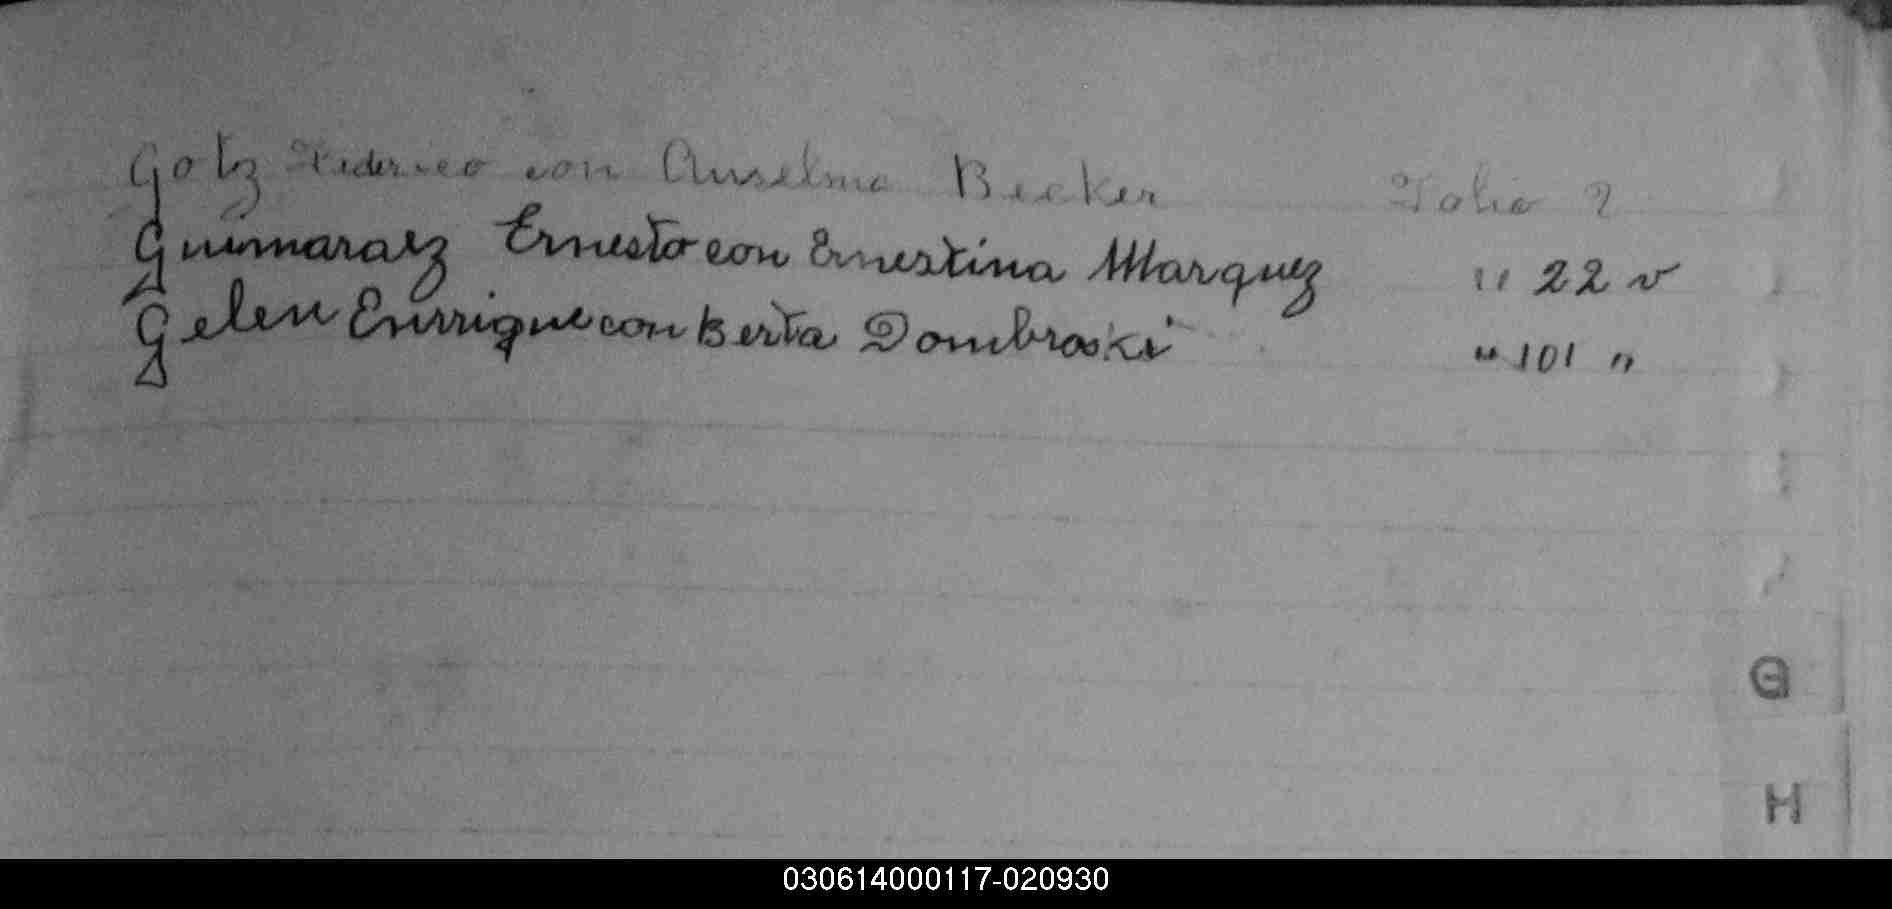 Gotz Federico con Anselma Becker Folio 2
Guimaraez Ernesto con Ernestina Marquez " 22 v
Gelen Enrrique con Berta Dombroski " 101 "
G
H
030614000117-020930